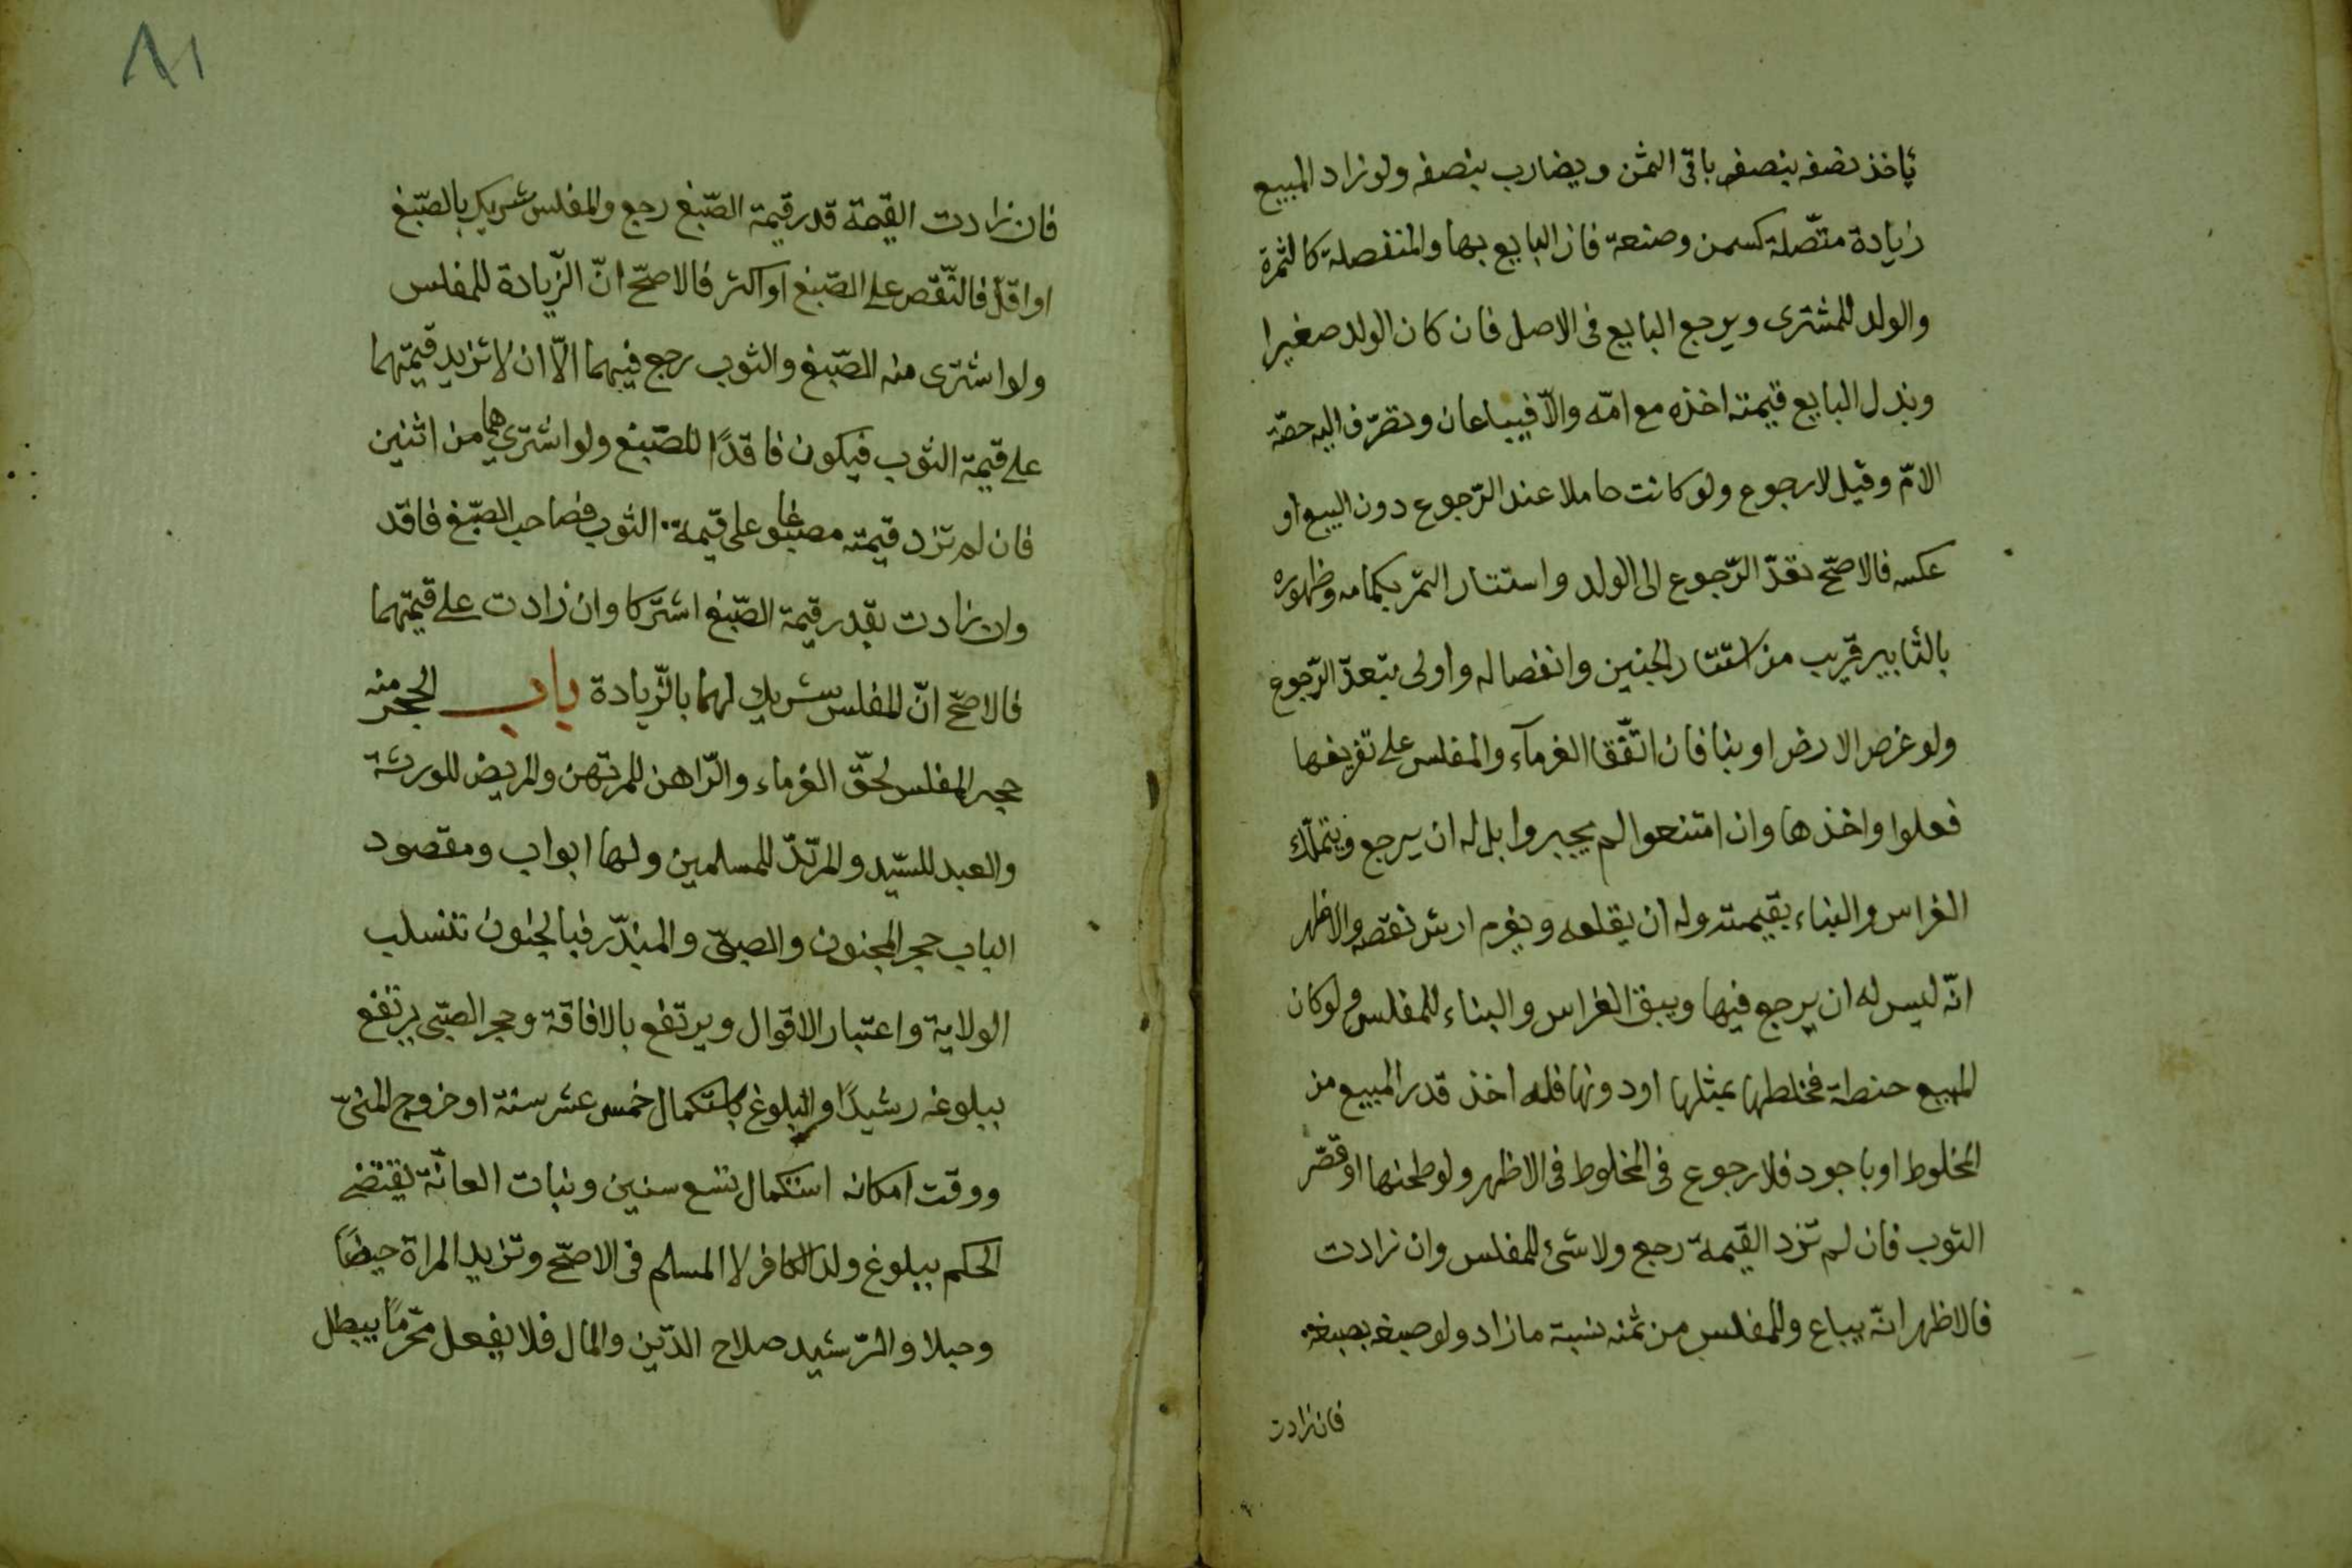 يأخذ نصفه بنصفه باقى الثمن ويضارب بنصفه ولو زاد المبيع
زيادة متّصلة كسمن وصنعة فاز البايع بها والمنفصلة كالثمرة
والولد للمشترى ويرجع البايع فى الاصل فان كان الولد صغيرا
وبذل البايع قيمته اخذه مع امّه والاّ فيباعان وتصرّف اليه حصّة
الامّ وقيل لا رجوع ولو كانت حاملا عند الرّجوع دون البيع او
عكسه فالاصحّ تعدّ الرّجوع الى الولد واستتار الثمر بكمامه وظهوره
بالتأبير قريب من استتار الجنين وانفصاله واولى بتعدّ الرّجوع
ولو غرص الارض او بنا فان اتّفقا الغرمآء والمفلس على تفريغها
فعلوا واخذها وان امتنعوا لم يجبروا بل له ان يرجع ويتملّك
الغراس والبناء بقيمته وله ان يقلعه ويغرم ارش نقصه والاظهر
انّه ليس له ان يرجع فيها ويبقى الغراس والبناء للمفلس ولو كان
المبيع حنطة فخلطها بمثلها او دونها فله اخذ قدر المبيع من
المخلوط او باجود فلا رجوع فى المخلوط فى الاظهر ولو طحنها او قصّر
الثوب فان لم تزد القيمة رجع ولا شئ للمفلس وان زادت
فالاظهر انّه يباع وللمفلس من ثمنه نسبة ما زاد ولو صبغه بصبغه
فان زادت
٨١
فان زادت القيمة قدر قيمة الصّبغ رجع والمفلس شريك بالصّبغ
او اقلّ فالنّقص على الصّبغ او اكثر فالاصحّ انّ الزّيادة للمفلس
ولو اشترى منه الصّبغ والثوب رجع فيهما الاّ ان لا تزيد قيمتهما
على قيمة الثوب فيكون فاقدًا للصّبغ ولو اشتريهما من اثنين
فان لم تزد قيمته مصبوغا على قيمة الثوب فصاحب الصّبغ فاقد
وان زادت بقدر قيمة الصّبغ اشتركا وان زادت على قيمتهما
فالاصحّ انّ المفلس شريك لهما بالزّيادة باب الحجر منه
حجر المفلس لحقّ الغرماء والرّاهن للمرتهن والمريض للورثة
والعبد للسّيد والمرتدّ للمسلمين ولها ابواب ومقصود
الباب حجر المجنون والصبىّ والمبذّر فبالجنون تنسلب
الولاية واعتبار الاقوال ويرتفع بالافاقة وحجر الصّبى يرتفع
ببلوغه رشيدًا والبلوغ باستكمال خمس عشر سنة او خروج المنىّ
ووقت امكانه استكمال تسع سنين ونبات العانة يقتضى
الحكم ببلوغ ولد الكافر لا المسلم فى الاصحّ وتزيد المراة حيضًا
وحبلا والرّشيد صلاح الدّين والمال فلا يفعل محرّمًا يبطل